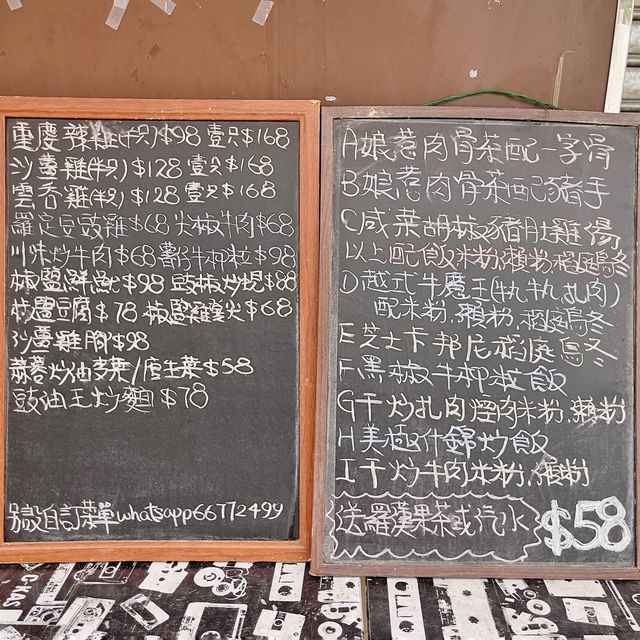 重慶辣雞(半只)$98 壹只$168
沙薑雞(半只)$128 壹只$168
雲吞雞(半只)$128 壹只$168
羅定豆豉雞$68 尖椒牛肉$68
川味炒牛肉$68 薯仔牛柳粒$98
椒鹽鮮魷$98 豉椒炒蜆$88
椒鹽豆腐$78 椒鹽雞翼尖$68
沙薑雞$98
蒜蓉炒油麦菜/唐生菜$58
豉油王炒麵$78
另設自訂菜單whatsapp66772499
A娘惹肉骨茶配一字骨
B娘惹肉骨茶配豬手
C咸菜胡椒豬肚雞湯
以上配飯.米粉.瀨粉.稻庭烏冬
D越式牛魔王(牛丸.牛丸.扎肉)
配米粉.瀨粉.稻庭烏冬
E芝士卡邦尼稻庭烏冬
F黑椒牛柳粒飯
G干炒扎肉煙肉米粉.瀨粉
H美極什錦炒飯
I干炒牛肉米粉.瀨粉
送羅漢果茶或汽水 $58